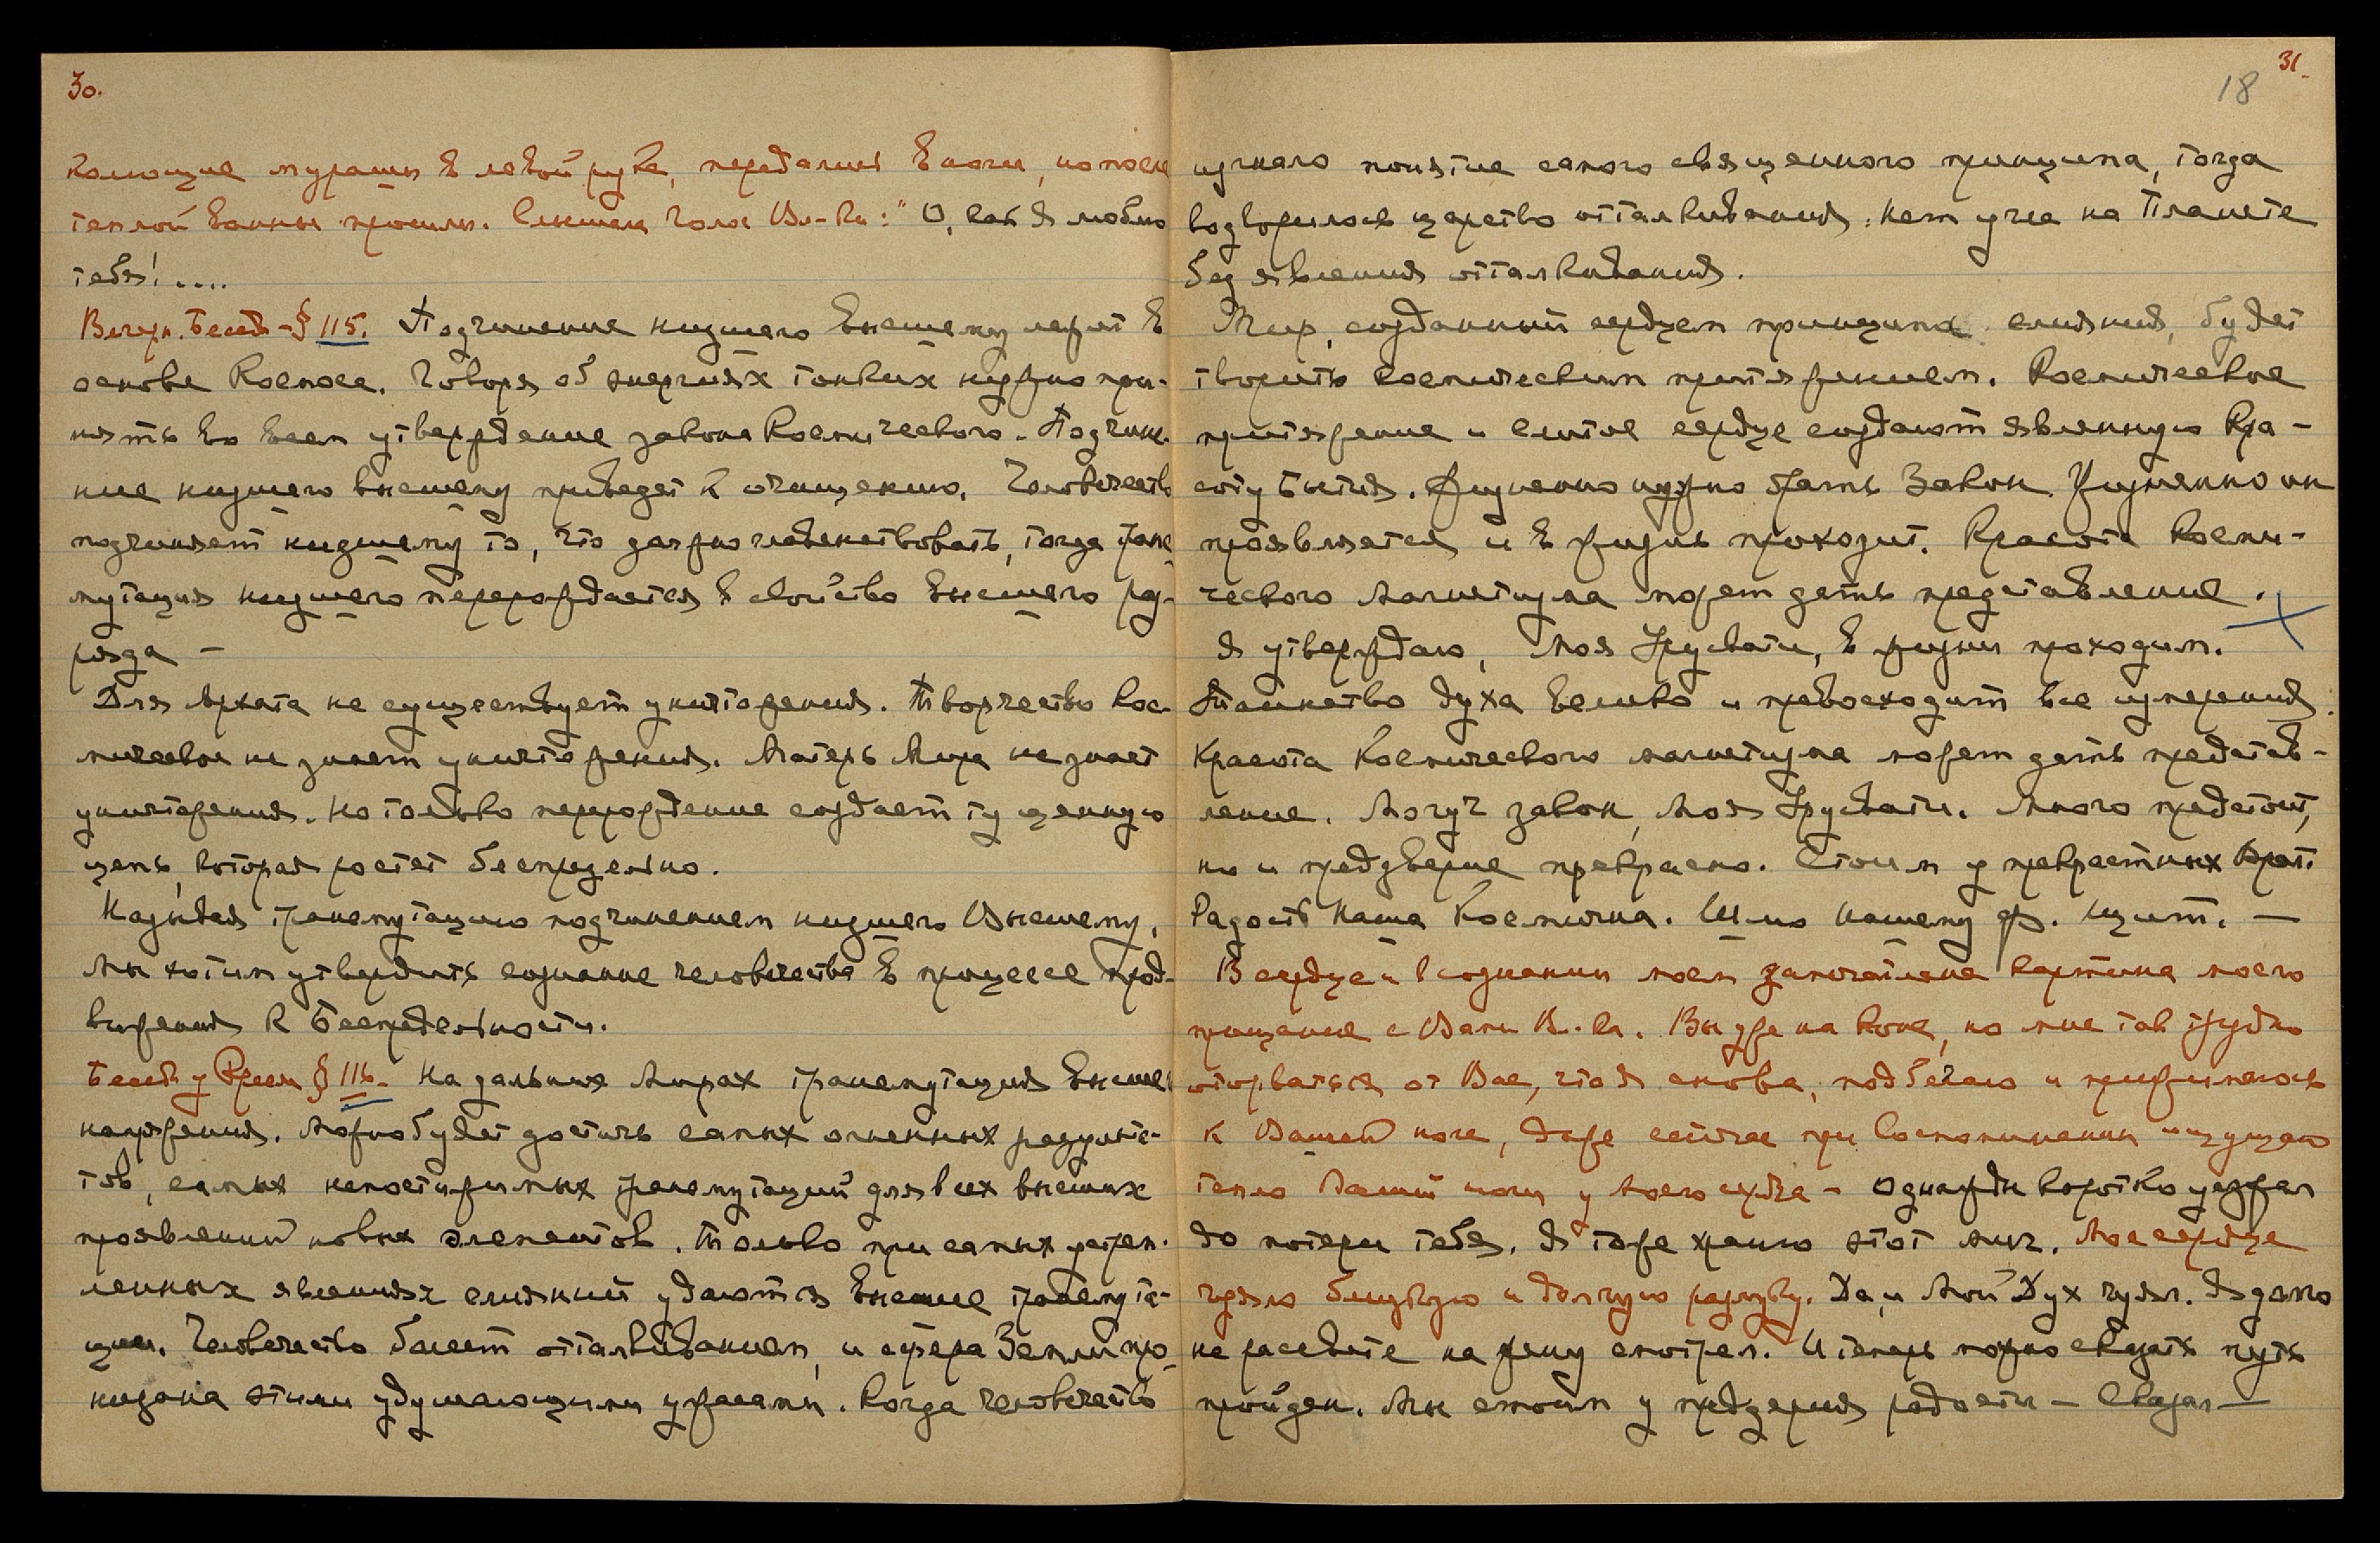 30.
колющие мураши в левой руке, передались в ноги, но после
теплой ванны прошли. Слышала Голос Вл-ки: "О, как Я люблю
тебя!....
Вечерн. Беседа - § 115. Подчинение низшего высшему лежит в
основе Космоса. Говоря об энергиях тонких нужно при-
нять во всем утверждение закона Космического. Подчине-
ние низшего высшему приведет к очищению. Человечество
подчиняет низшему то, что должно главенствовать, тогда транс-
мутация низшего перерождается в свойство высшего раз-
ряда —
Для Архата не существует уничтожения. Творчество Кос-
мическое не знает уничтожения. Матерь Мира не знает
уничтожения. Но только перерождение создает ту ценную
цепь, которая растет беспредельно.
Называя трансмутацию подчинением низшего Высшему,
Мы хотим утвердить сознание человечества в процессе прод-
вижения к Беспредельности.
Беседа у § 116. На дальних Мирах трансмутация высшего
напряжения. Можно будет достичь самых огненных результа-
тов, самых непостижимых трансмутаций для всех высших
проявлений новых элементов. Только при самых устрем-
ленных явлениях слияний удаются высшие трансмута-
ции. Человечество болеет отталкиванием, и сфера Земли про-
низана этими удушающими ужасами. Когда человечество
31.
18
изгнало понятие самого священного принципа, тогда
водворилось царство отталкивания. Нет угла на Планете
без явления отталкивания.
Мир, созданный сердцем принципа слияния, будет
творить космическим притяжением. Космическое
притяжение и слитое сердце создают явленную Кра-
соту Бытия. Жизненно нужно брать Закон. Жизненно он
проявляется и в жизнь проходит. Красота Косми-
ческого Магнетизма может дать представление.
Я утверждаю, Моя Урусвати, в жизни проходим.
Таинство духа велико и превосходит все измерения.
Красота Космического магнетизма может дать представ-
ление. Могуч закон, Моя Урусвати. Много предстоит,
но и предверие прекрасно. Стоим у прекрасных врат.
Радость наша Космична. Шлю нашему щит. —
В сердце и в сознании моем запечатлена картина моего
прощания с Вами В.-ка. Вы уже на коне, но мне так трудно
оторваться от Вас, что я снова подбегаю и прижимаюсь
к Вашей ноге, даже сейчас при воспоминании ощущаю
тепло Вашей ноги у моего сердца — Однажды коротко уезжал
до потери тебя. Я тоже храню этот миг. Мое сердце
чуяло близкую и долгую разлуку. Да, и Мой Дух чуял. Я долго
не рассвете на жену смотрел. И теперь можно сказать путь
пройден. Мы стоим у предверия радости — Сказал —